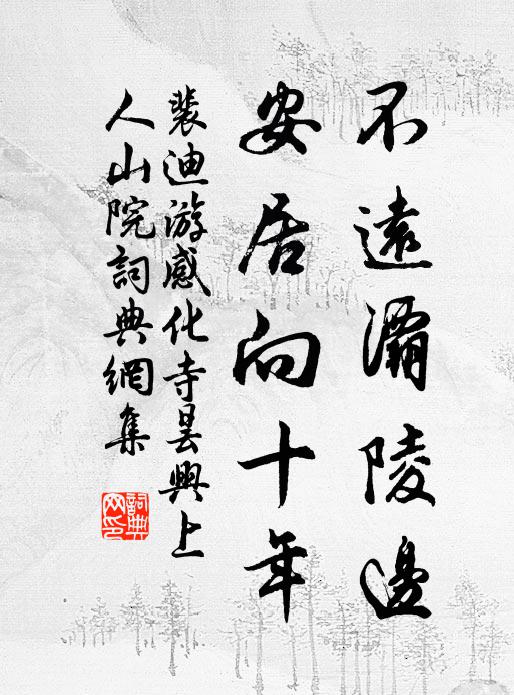 不遠灞陵邊
安居向十年
裴迪游感化寺曇興上
人山院詞典網集
詞典網印